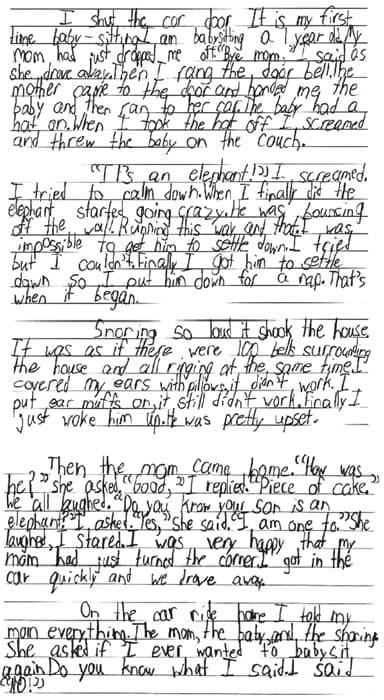 I shut the car door. It is my first
time baby-sitting. I am babysitting a 1 year old. My
mom had just dropped me off. "Bye mom," I said as
she drove away. Then I rang the door bell. the
mother came to the door and handed me the
baby and then ran to her car. The baby had a
hat on. When I took the hat off I screamed
and threw the baby on the couch.
"It's an elephant!?" I screamed.
I tried to calm down. When I finally did the
elephant started going crazy. He was bouncing
off the wall. Running this way and that. I was
impossible to get him to settle down. I tried
but I couldn't. Finally I got him to settle
down so I put him down for a nap. That's
when it began.
Snoring so loud it shook the house
It was as if there were 100 bells surrounding
the house and all ringing at the same time. I
covered my ears with pillows, it didn't work. I
put ear muffs on, it still didn't work. Finally I
just woke him up. He was pretty upset.
Then the mom came home. "How was
he?" she asked. "Good," I replied. "Piece of cake."
We all laughed. "Do you know your son is an
elephant?" I asked. "Yes," she said. "I am one to." She
laughed, I stared. I was very happy that my
mom had just turned the corner. I got in the
car quickly and we drove away.
On the car ride home I told my
mom everything. The mom, the baby, and the snoring.
She asked if I ever wanted to babysit
again. Do you know what I said. I said
"NO!"